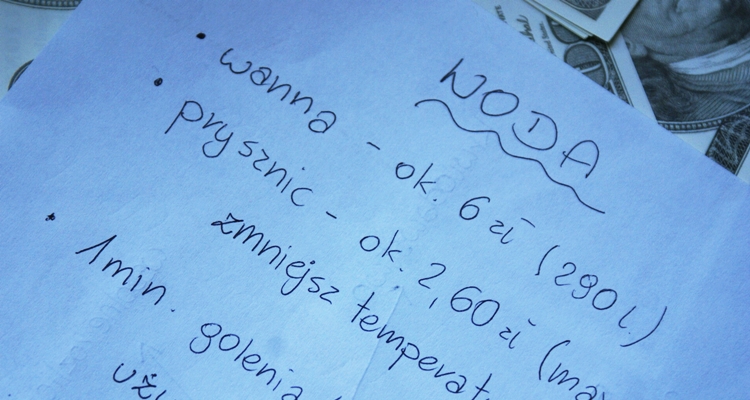 WODA
• wanna - ok. 6 zł (290 l.)
• prysznic - ok. 2,60 zł (max
zmniejsz temperat
• 1min. golenia
uży